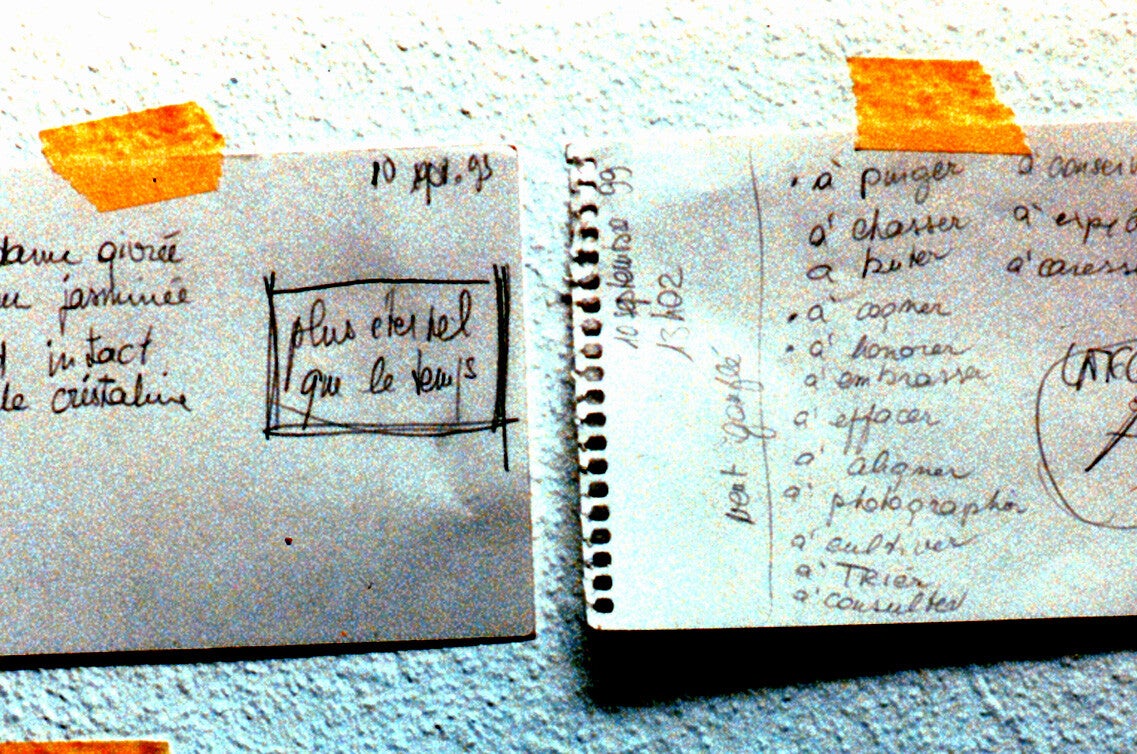 10 sept. 93
dame givrée
jasminée
intact
de cristaline
plus eternel
que le temps
10 septembre 99
13 h02
vent gonflé
• à purger
à chasser
à buter
• à cogner
• à honorer
à embrasser
à effacer
à aligner
à photographier
à cultiver
à TRIER
à consulter
à conserv
à
à caress